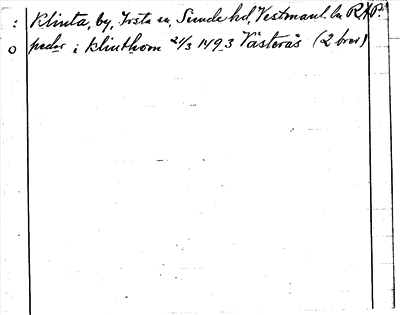 : Klinta, by, Irsta sn, Siende hd, Vestmanl. län RAP.
o peder i klinthom 21/3 1493 Västerås (2 brev)